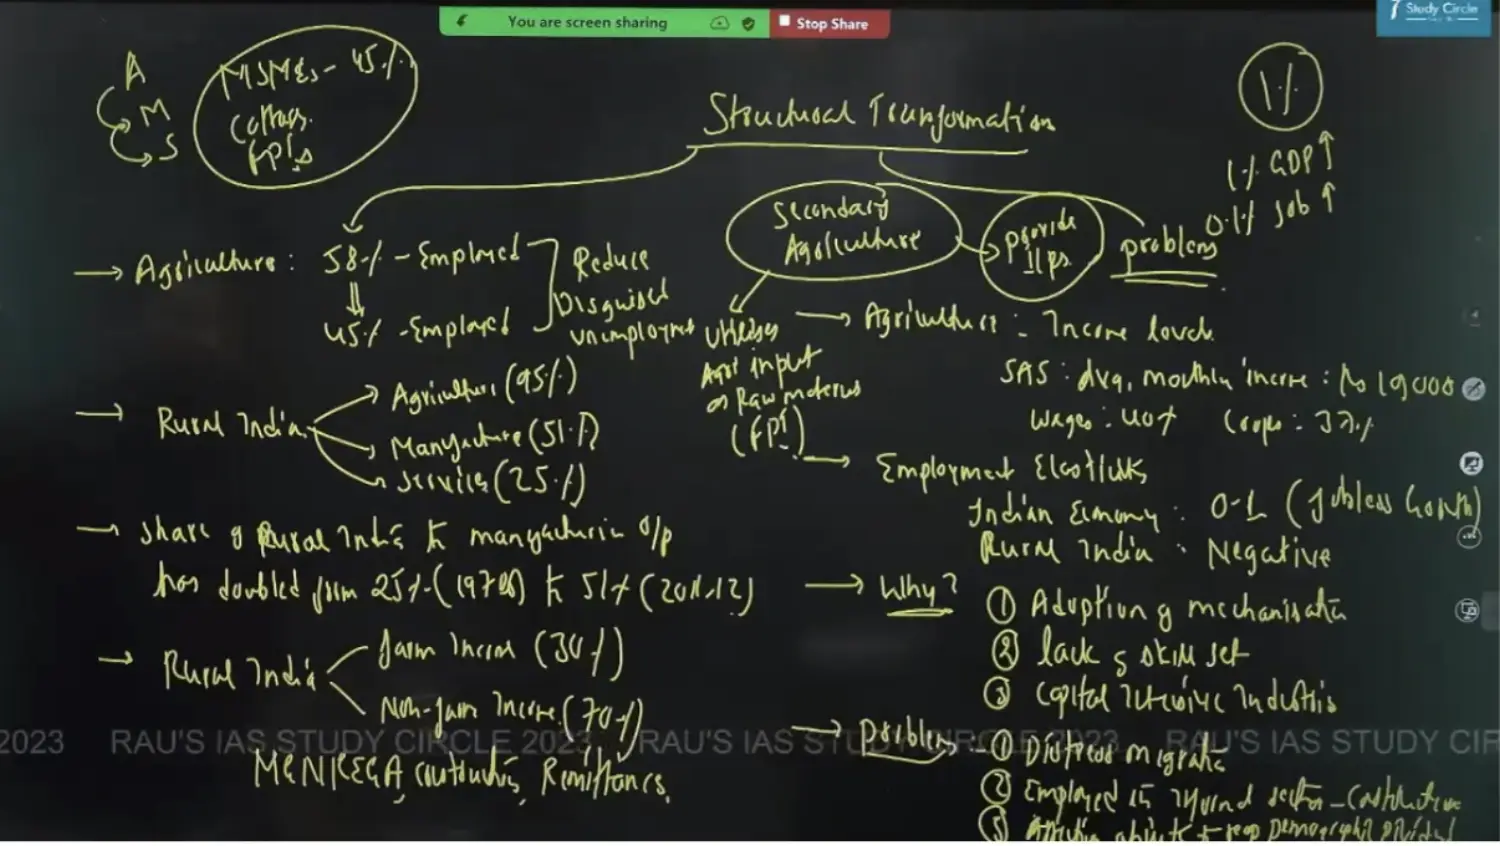 You are screen sharing
Stop Share
Study Circle
A
M
S
MSMEs - 45%
Cottage
FPIs
Structural Transformation
1%
1% GDP ↑
0.1% Job ↑
Secondary
Agriculture
→ provide
problems
→ Agriculture: 58% - Employed
Reduce
Disguised
unemployment
45% - Employed
utilises
Agri input
or Raw materials
(FPI)
→ Agriculture: Income levels
SAS: Avg. monthly income: Rs 10,000
Wages: 40% Crops: 37%
→ Rural India
Agriculture (95%)
Manufacture (51%)
Services (25%)
→ Employment Elasticity
Indian Economy: 0.1 (Jobless Growth)
Rural India: Negative
→ Share of Rural India to manufacturing o/p
has doubled from 25% (1970s) to 51% (2011-12)
→ Why?
① Adoption of mechanisation
② lack of skill set
③ Capital Intensive Industries
→ Rural India
farm Income (30%)
Non-farm Income (70%)
MGNREGA, construction, Remittances.
→ problems
① Distress migration
② Employed in informal sector - construction
③ Affecting ability to reap Demographic dividend
2023 RAU'S IAS STUDY CIRCLE 2023 RAU'S IAS STUDY CIRCLE 2023 RAU'S IAS STUDY CIR